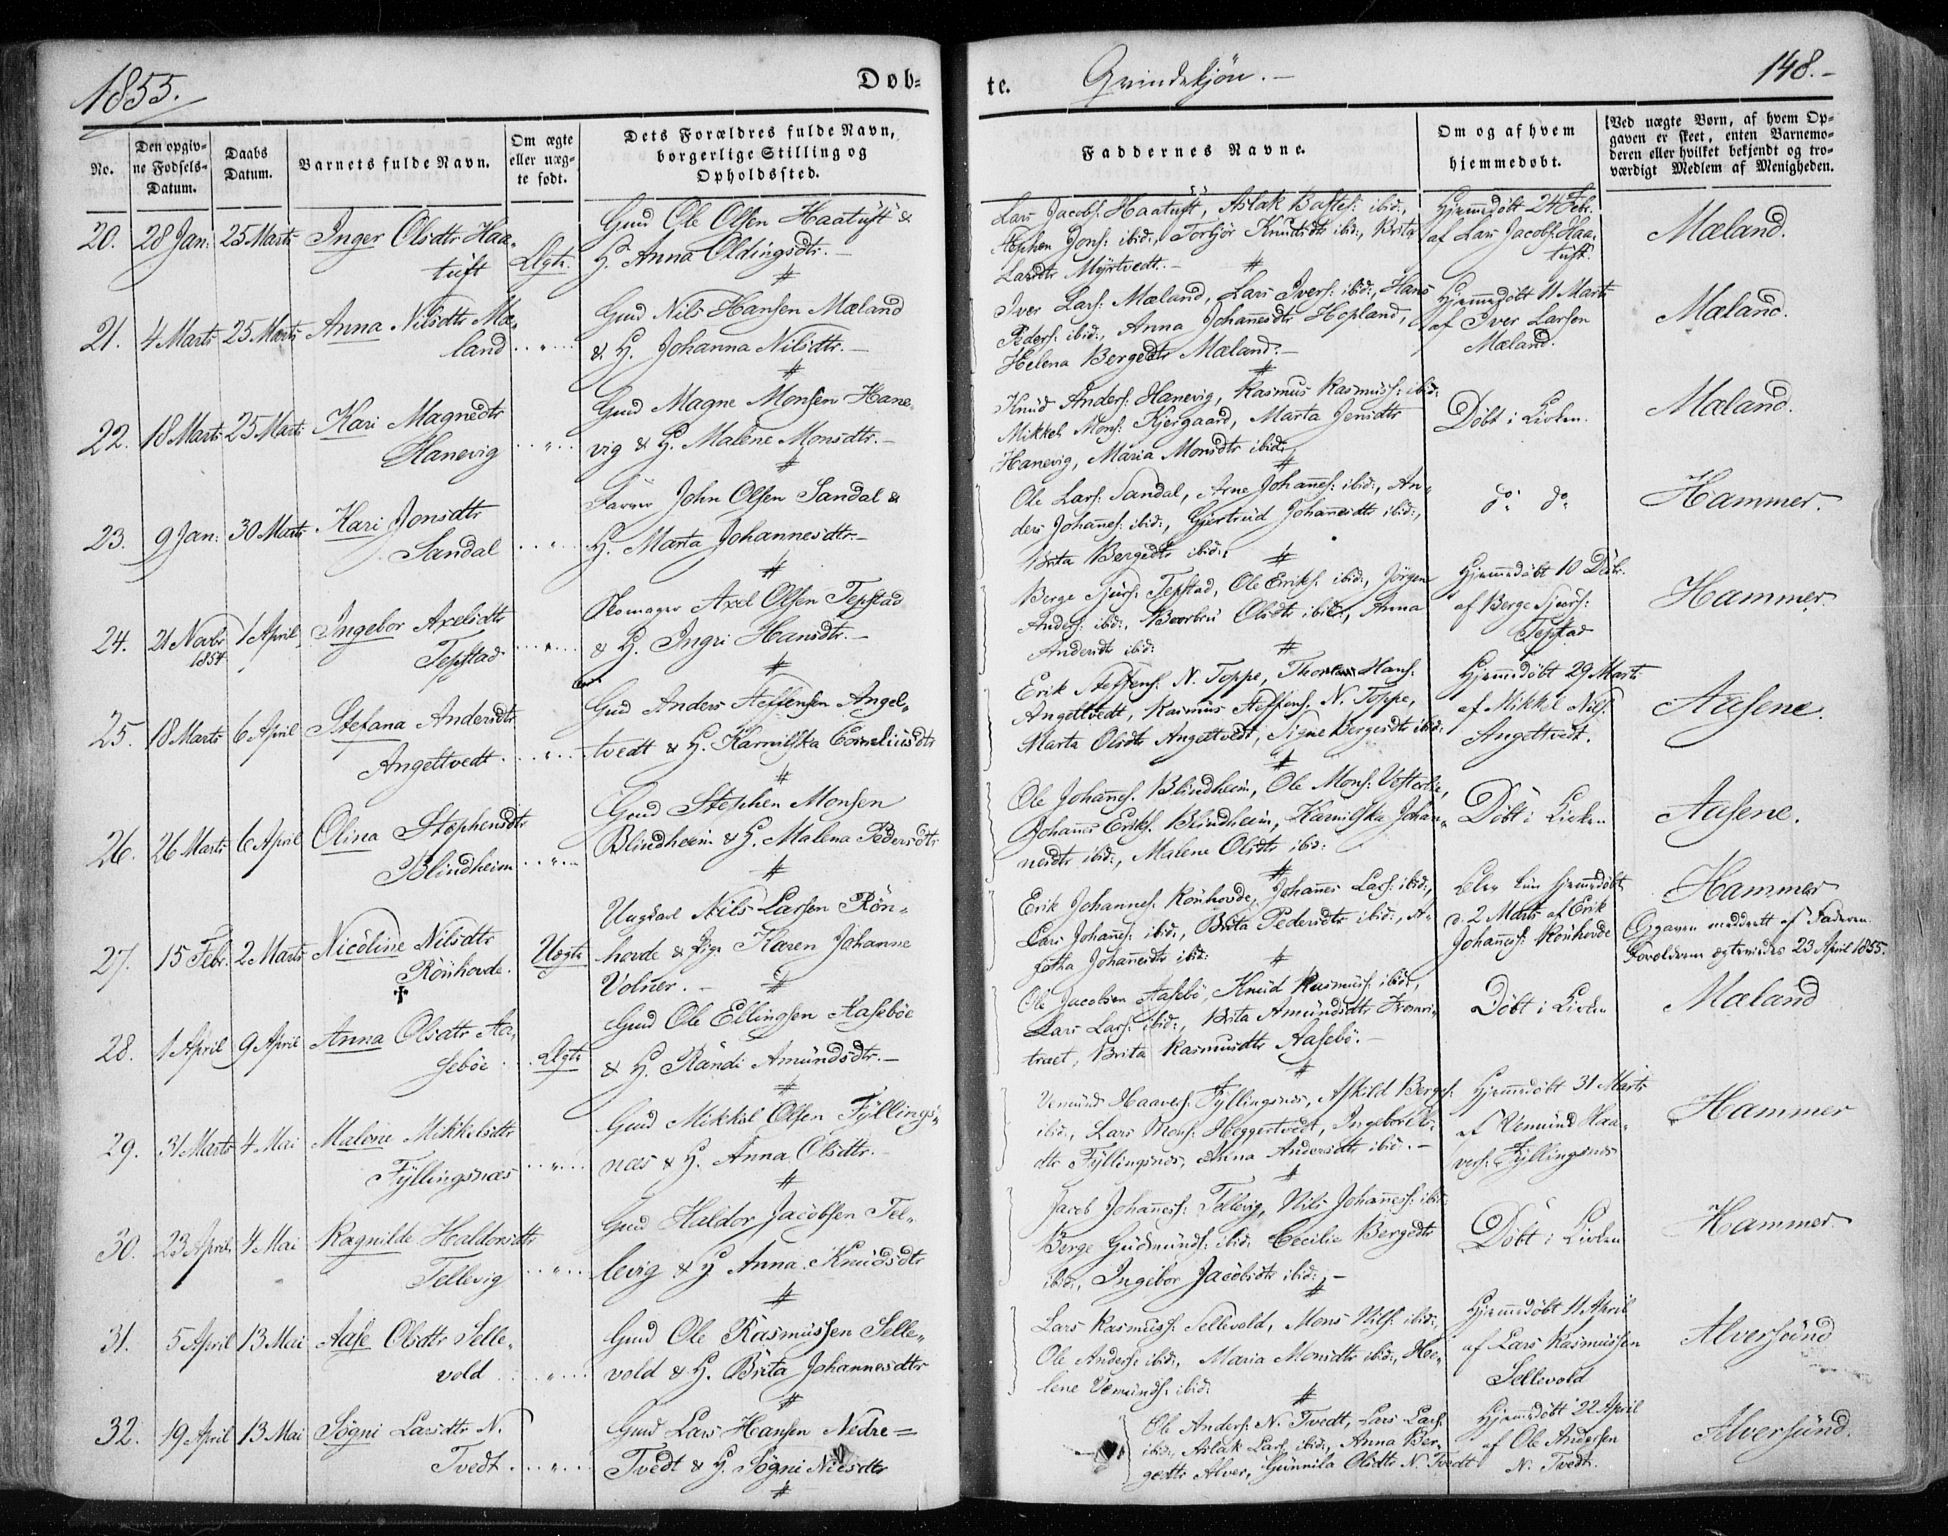 1855.
Døb-
te.
Qvindekjön.
148.
No.
Den opgiv-
ne Fødsels-
Datum.
Daabs
Datum.
Barnets fulde Navn.
Om ægte
eller uæg-
te født.
Dets Forældres fulde Navn,
borgerlige Stilling og
Opholdssted.
Faddernes Navne.
Om og af hvem
hjemmedøbt.
(Ved uægte Børn, af hvem Op-
gaven er skeet, enten Barnemo-
deren eller hvilket bekjendt og tro-
værdigt Medlem af Menigheden.
20. 28 Jan: 25 Marts Inger Olsdtr Haa-
tuft Ægte
Gmd Ole Olsen Haatuft &
H. Anna Oldingsdtr.
Lars Jacobs: Haatuft, Aslak ibid:,
Stephen Jons: ibid:, Torbjör Knutsdtr ibid:, Brita
Larsdtr Myrtvedt.
Hjemmedöbt 24 Febr.
af Lars Jacobs: Haa-
tuft.
Mæland.
21. 4 Marts 25 Marts Anna Nilsdtr Mæ-
land
Gmd Nils Hansen Mæland
& H. Johanna Nilsdtr.
Iver Lars: Mæland, Lars Ivers: ibid:, Hans
Peders: ibid:, Anna Johannesdtr Hopland,
Helena Bergedtr Mæland.
Hjemmedöbt 11 Marts
af Iver Larsen
Mæland.
Mæland.
22. 18 Marts 25 Marts Kari Magnedtr
Hanevig
Gmd Magne Monsen Hane-
vig & H. Malene Monsdtr.
Knud Anders: Hanevig, Rasmus Rasmuss: ibid:
Mikkel Mons: Kjergaard, Marta Jensdtr
Hanevig, Maria Monsdtr ibid:
Döbt i Kirken.
Mæland.
23. 9 Jan: 30 Marts Kari Jonsdtr
Sandal
John Olsen Sandal &
H. Marta Johannesdtr
Ole Lars: Sandal, Arne Johannes: ibid:, An-
ders Johannes: ibid:, Gjertrud Johannesdtr ibid:,
Brita Bergedtr ibid:
do do
Hammer.
24. 21 Novbr 1 April Ingebor Axelsdtr
1854
Tepstad
Skomager Axel Olsen Tepstad
& H. Ingri Hansdtr.
Berge Sjurs: Tepstad, Ole Eriks: ibid:, Jörgen
Anders: ibid:, Olsdtr ibid:, Anna
Andersdtr ibid:
Hjemmedöbt 10 Debr.
af Berge Sjurs:
Tepstad
Hammer.
25. 18 Marts 6 April Stefana Andersdtr
Angeltvedt
Gmd Anders Steffensen Angel-
tvedt & H. Karnilska Corneliusdtr
Erik Steffens: N. Toppe, Hans:
Angeltvedt, Rasmus Steffens: N. Toppe,
Marta Olsdtr Angeltvedt, Signe Bergesdtr ibid:
Hjemmedöbt 29 Marts
af Mikkel Nils:
Angeltvedt.
Aasene.
26. 26 Marts 6 April Olina Stephensdtr
Blindheim
Gmd Stephen Monsen
Blindheim & H. Malena Pedersdtr
Ole Johannes: Blindheim, Ole Mons: Vesterlie,
Johannes Eriks: Blindheim, Karnilska Johan-
nesdtr ibid:, Malene Olsdtr ibid:
Döbt i Kirken
Aasene.
27. 15 Febr. 2 Marts Nicöline Nilsdtr
Rönhovde.
Uægte
Ungkarl Nils Larsen Rön-
hovde & Pige Karen Johanne
Volner.
Erik Johannes: Rönhovde, Johannes Lars: ibid:,
Lars Johannes: ibid:, Brita Pedersdtr ibid:, A-
gatha Johannesdtr ibid:
Blev kun hjemmedöbt
d. 2 Marts af Erik
Johannes: Rönhovde
Hammer
Opgaven meddeelt af Faderen.
Forældrene ægteviedes 23 April 1855.
28. 1 April 9 April Anna Olsdtr Aa-
sebøe
Ægte
Gmd Ole Ellingsen Aasebøe
& H. Randi Amundsdtr.
Ole Jacobsen Aasebö, Knud Rasmus: ibid:,
Lars Lars: ibid:, Brita Amundsdtr
Brita Rasmusdtr Aasebö.
Döbt i Kirken
Mæland
29. 31 Marts 4 Mai Malene Mikkelsdtr
Fyllingsnæs
Gmd Mikkel Olsen Fyllings-
næs & H. Anna Olsdtr.
Vemund Haavers: Fyllingsnæs, Askild Berges:
ibid:, Lars Mons: Heggertvedt, Ingebor
dtr Fyllingsnæs, Anna Andersdtr ibid:.
Hjemmedöbt 31 Marts
af Vemund Haa-
vers: Fyllingsnæs
Hammer
30. 23 April 4 Mai Ragnilde Haldorsdtr
Tellevig
Gmd Haldor Jacobsen Tel-
levig & H. Anna Knudsdtr
Jacob Johannes: Tellevig, Nils Johannes: ibid:
Berge Gudmunds: ibid: Cecilie Bergedtr
ibid:, Ingebor Jacobsdtr ibid:,
Döbt i Kirken
Hammer
31. 5 April 13 Mai Aase Olsdtr Selle-
vold
Gmd Ole Rasmussen Selle-
vold & H. Brita Johannesdtr
Lars Rasmuss: Sellevold, Mons Nils: ibid:,
Ole Anders: ibid:, Maria Monsdtr ibid:, He-
lene Vemunds: ibid:
Hjemmedöbt 11 April
af Lars Rasmussen
Sellevold
Alversund
32. 19 April 13 Mai Sögni Larsdtr N.
Tvedt
Gmd Lars Hansen Nedre
Tvedt & H. Sögni Nilsdtr
Ole Anders: N. Tvedt, Lars Lars:
ibid:, Aslak Lars: ibid:, Anna Ber-
gedtr Alver, Gunnila Olsdtr N. Tvedt
Hjemmedöbt 22 April
af Ole Andersen
N. Tvedt.
Alversund.